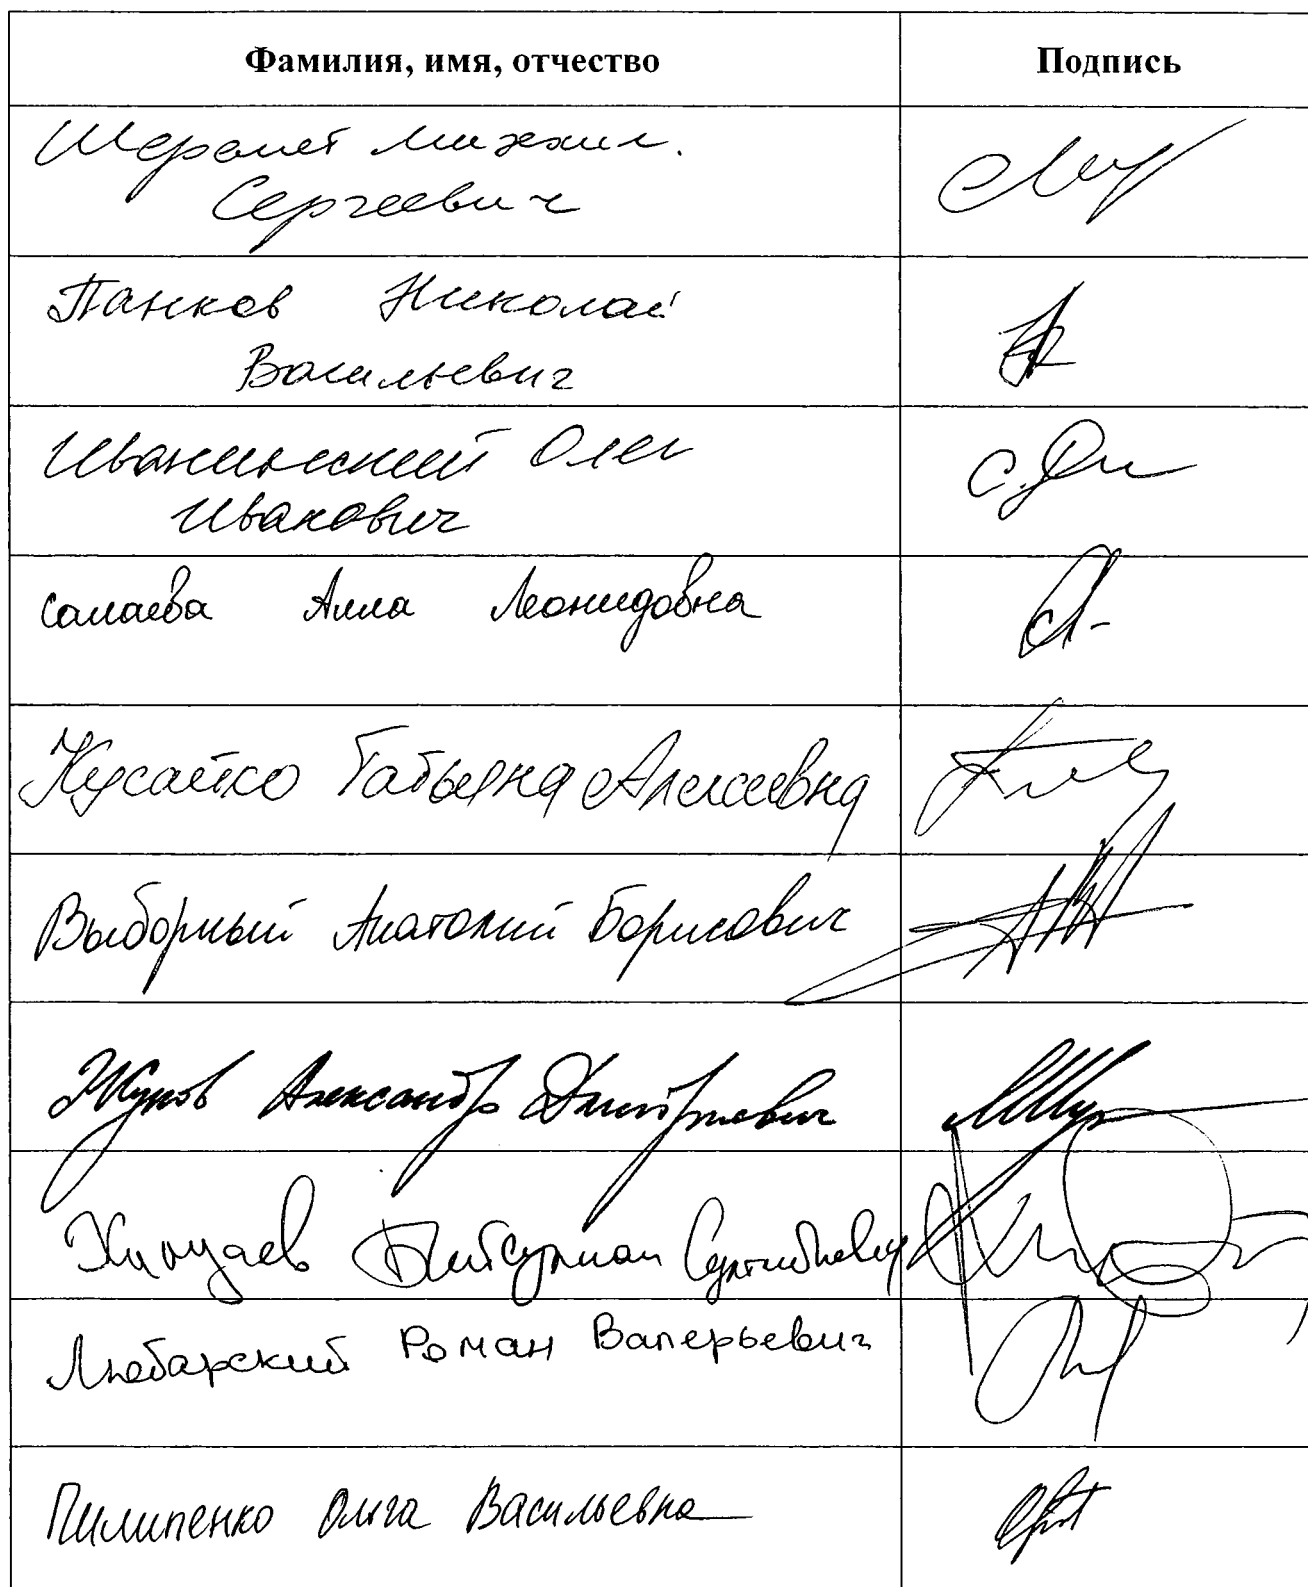 Фамилия, имя, отчество Подпись
Шеремет Михаил.
Сергеевич
Панков Николай
Васильевич
Иванинский Олег
Иванович
Салаева Алла Леонидовна
Кусайко Татьяна Алексеевна
Выборный Анатолий Борисович
Жуков Александр Дмитриевич
Хамзаев Бийсултан Султанбиевич
Любарский Роман Валерьевич
Пилипенко Ольга Васильевна